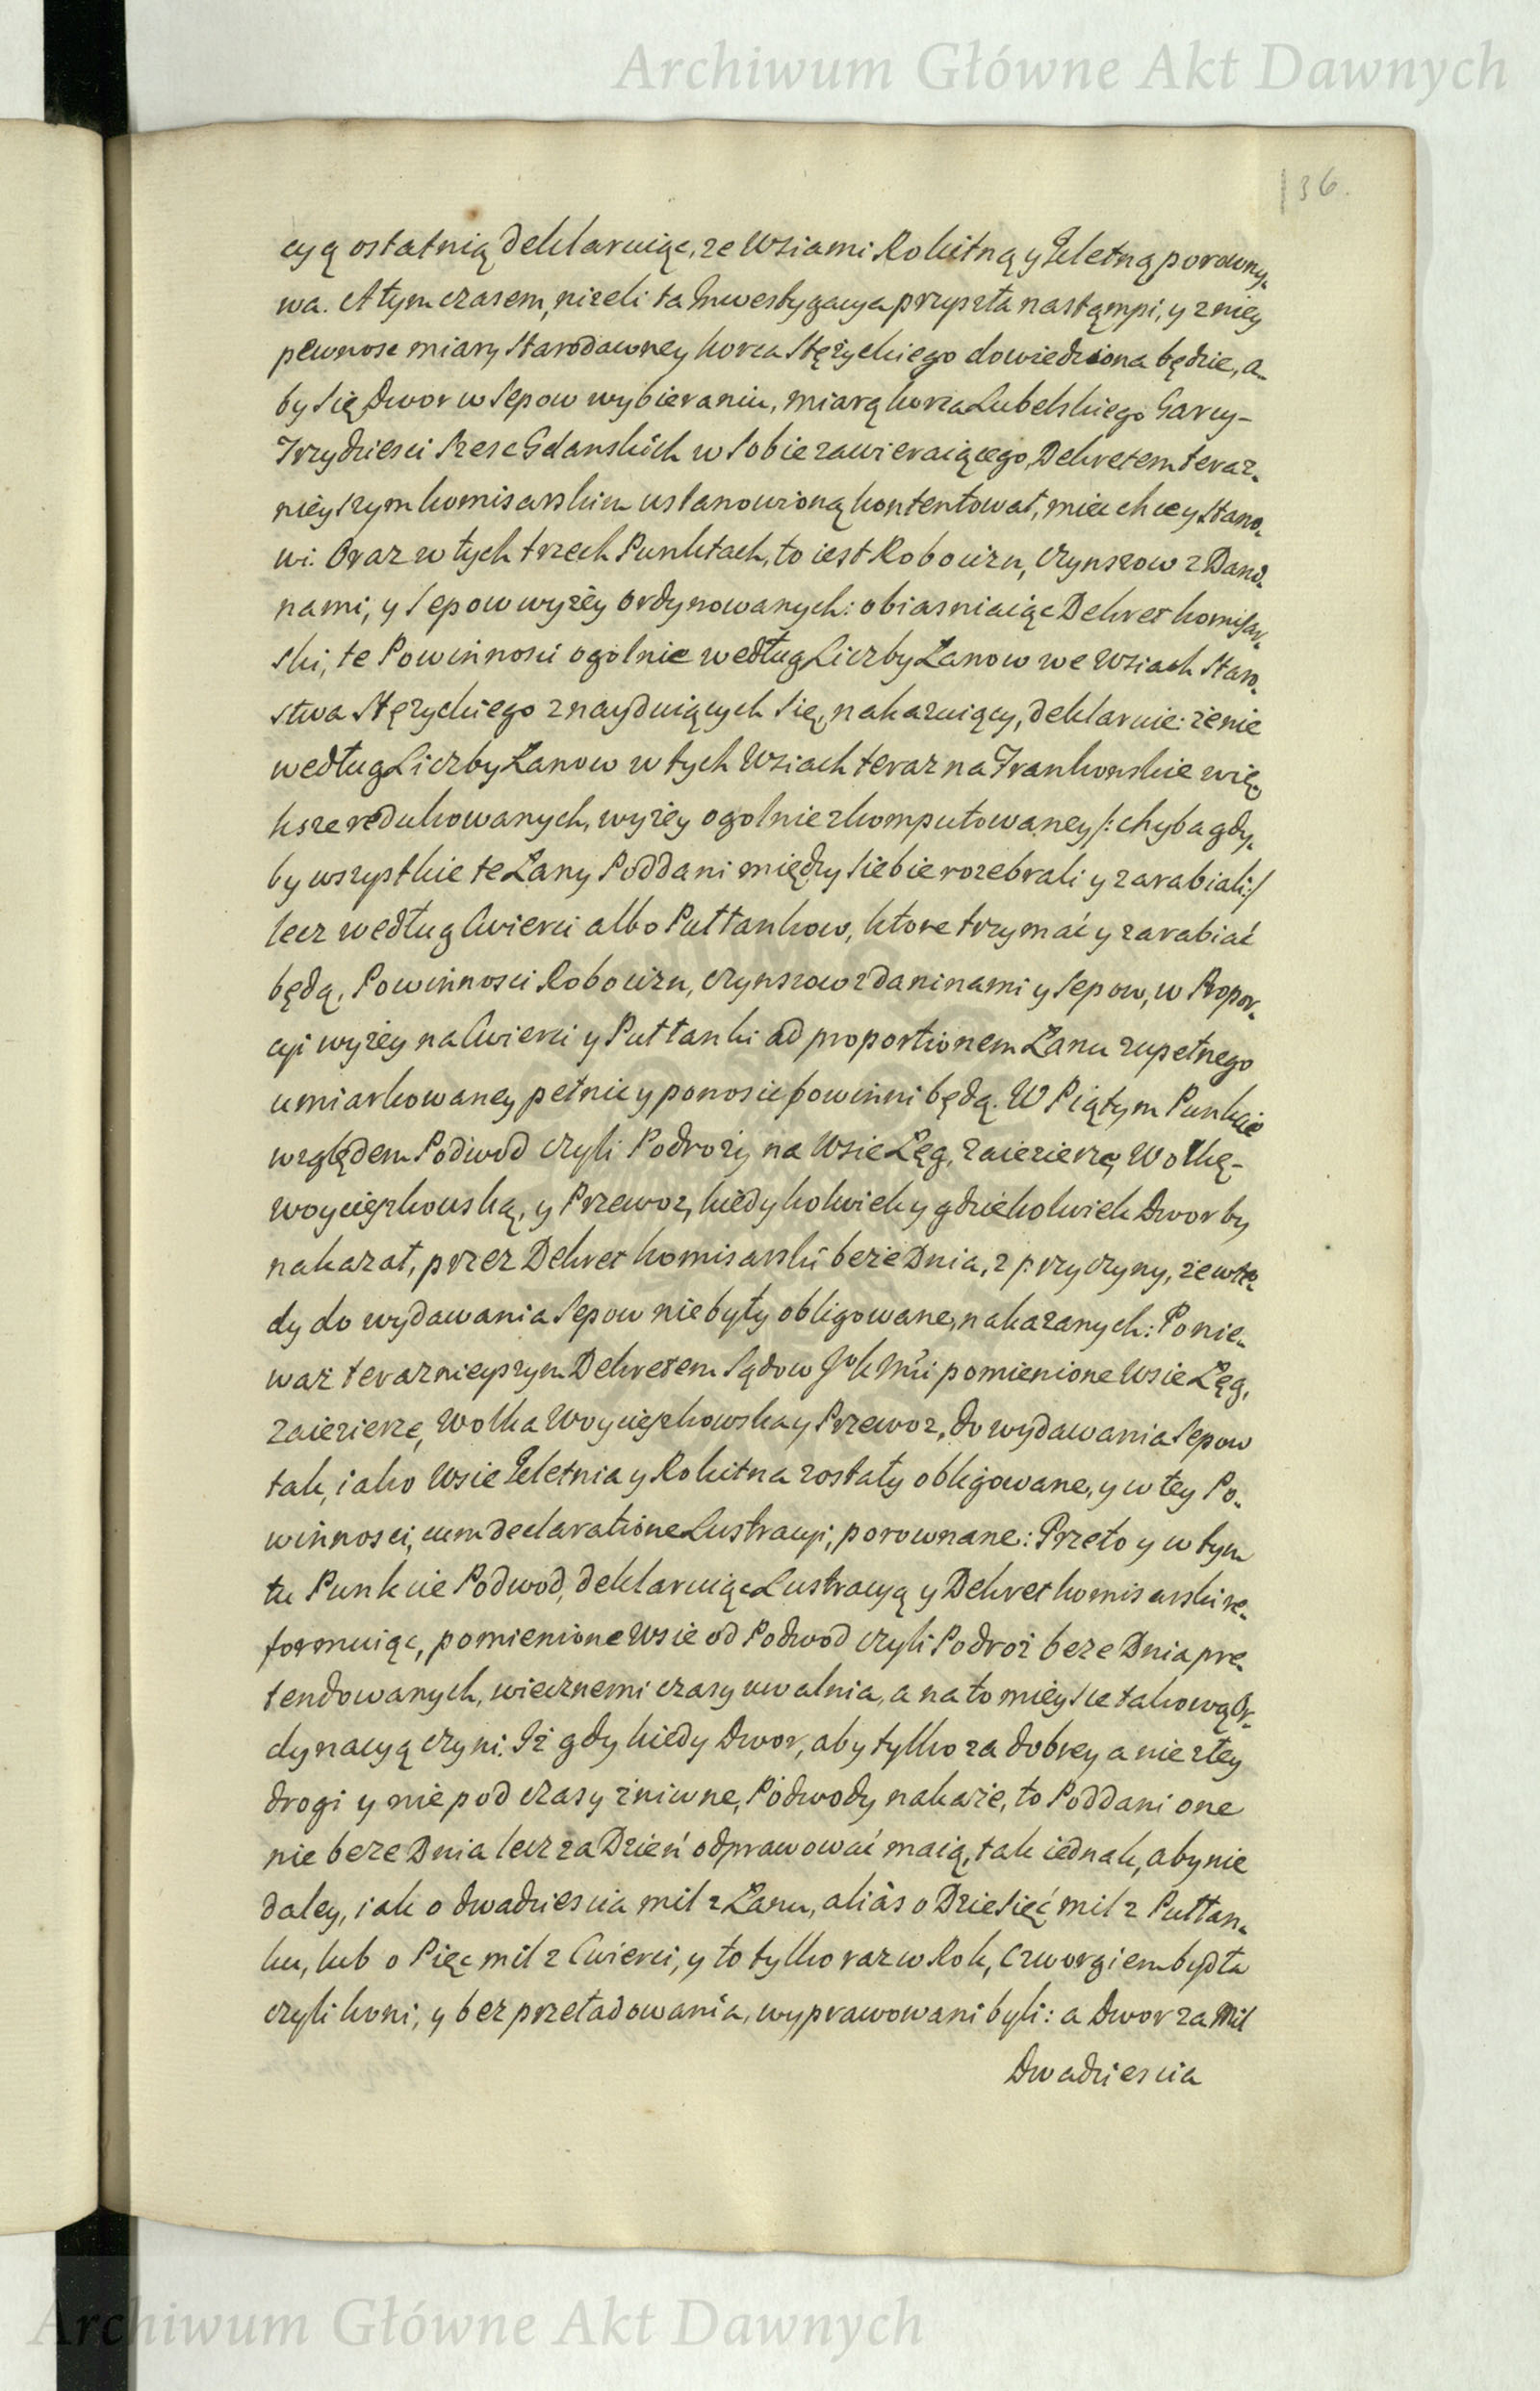 Archiwum Główne Akt Dawnych
136.
cyą ostatnią deklaruiąc, ze Wsiami Rokitną y Zeletną porowny-
wa. A tym czasem, nizeli ta Inwestygacya przyszła nastąmpi, y z niey
pewnosc miary Starodawney korca Stężyckiego dowiedziona będzie, a-
by się Dwor w Sepow wybieraniu, miarą korca Lubelskiego Garcy-
Trzydziesci Szesc Gdanskich w Sobie zawieraiącego, Dekretem teraz-
nieyszym komisarskim ustanowioną kontentował, miec chce y Stano-
wi. Oraz w tych trzech Punktach, to iest Robocizn, Czynszow z Dani-
nami, y Sepow wyżey ordynowanych: obiasniaiąc Dekret komisar-
ski, te Powinnosci ogolnie według Liczby Łanow we Wsiach Staro-
stwa Stężyckiego znayduiących się, nakazuiący, deklaruie: że nie
według Liczby Łanow w tych Wsiach teraz na Frankonskie wię-
ksze redukowanych, wyżey ogolnie zkomputowaney /: chyba gdy-
by wszystkie te Łany Poddani między siebie rozebrali y zarabiali :/
lecz według Cwierci albo Pułłankow, ktore trzymać y zarabiać
będą, Powinnosci Robocizn, Czynszow z daninami y Sepow, w Propor-
cyi wyżey na Cwierci y Pułłanki ad proportionem Łanu zupełnego
umiarkowaney pełnic y ponosic powinni będą. W Piątym Punkcie
względem Podwod czyli Podroży na Wsie Łęg, Zaiezierzę, Wolkę-
Woyciechowską, y Przewoz, kiedykolwiek y gdziekolwiek Dwor by
nakazał, przez Dekret komisarski beze Dnia, z przyczyny, że wte-
dy do wydawania Sepow nie były obligowane, nakazanych: Ponie-
waż teraznieyszym Dekretem Sądow JKMci pomienione Wsie Łęg,
Zaiezierze, Wolka Woyciechowska y Przewoz, do wydawania Sepow
tak, iako Wsie Zeletnia y Rokitna zostały obligowane, y w tey Po-
winnosci, cum declaratione Lustracyi, porownane: Przeto y w tym
tu Punkcie Podwod, deklaruiąc Lustracyą y Dekret komisarski re-
formuiąc, pomienione Wsie od Podwod czyli Podroż beze Dnia pre-
tendowanych, wiecznemi czasy uwalnia, a na to mieysce takową Or-
dynacyą czyni. Iż gdy kiedy Dwor, aby tylko za dobrey a nie złey
drogi y nie pod czasy żniwne, Podwody nakaże, to Poddani one
nie beze Dnia lecz za Dzień odprawować maią, tak iednak, aby nie
daley, iak o dwadziescia mil z Łanu, aliàs o Dziesięć mil z Pułłan-
ku, lub o Pięc mil z Cwierci, y to tylko raz w Rok, Czworgiem bydła
czyli koni, y bez przeładowania, wyprawowani byli: a Dwor za Mil
Dwadziescia
Archiwum Główne Akt Dawnych